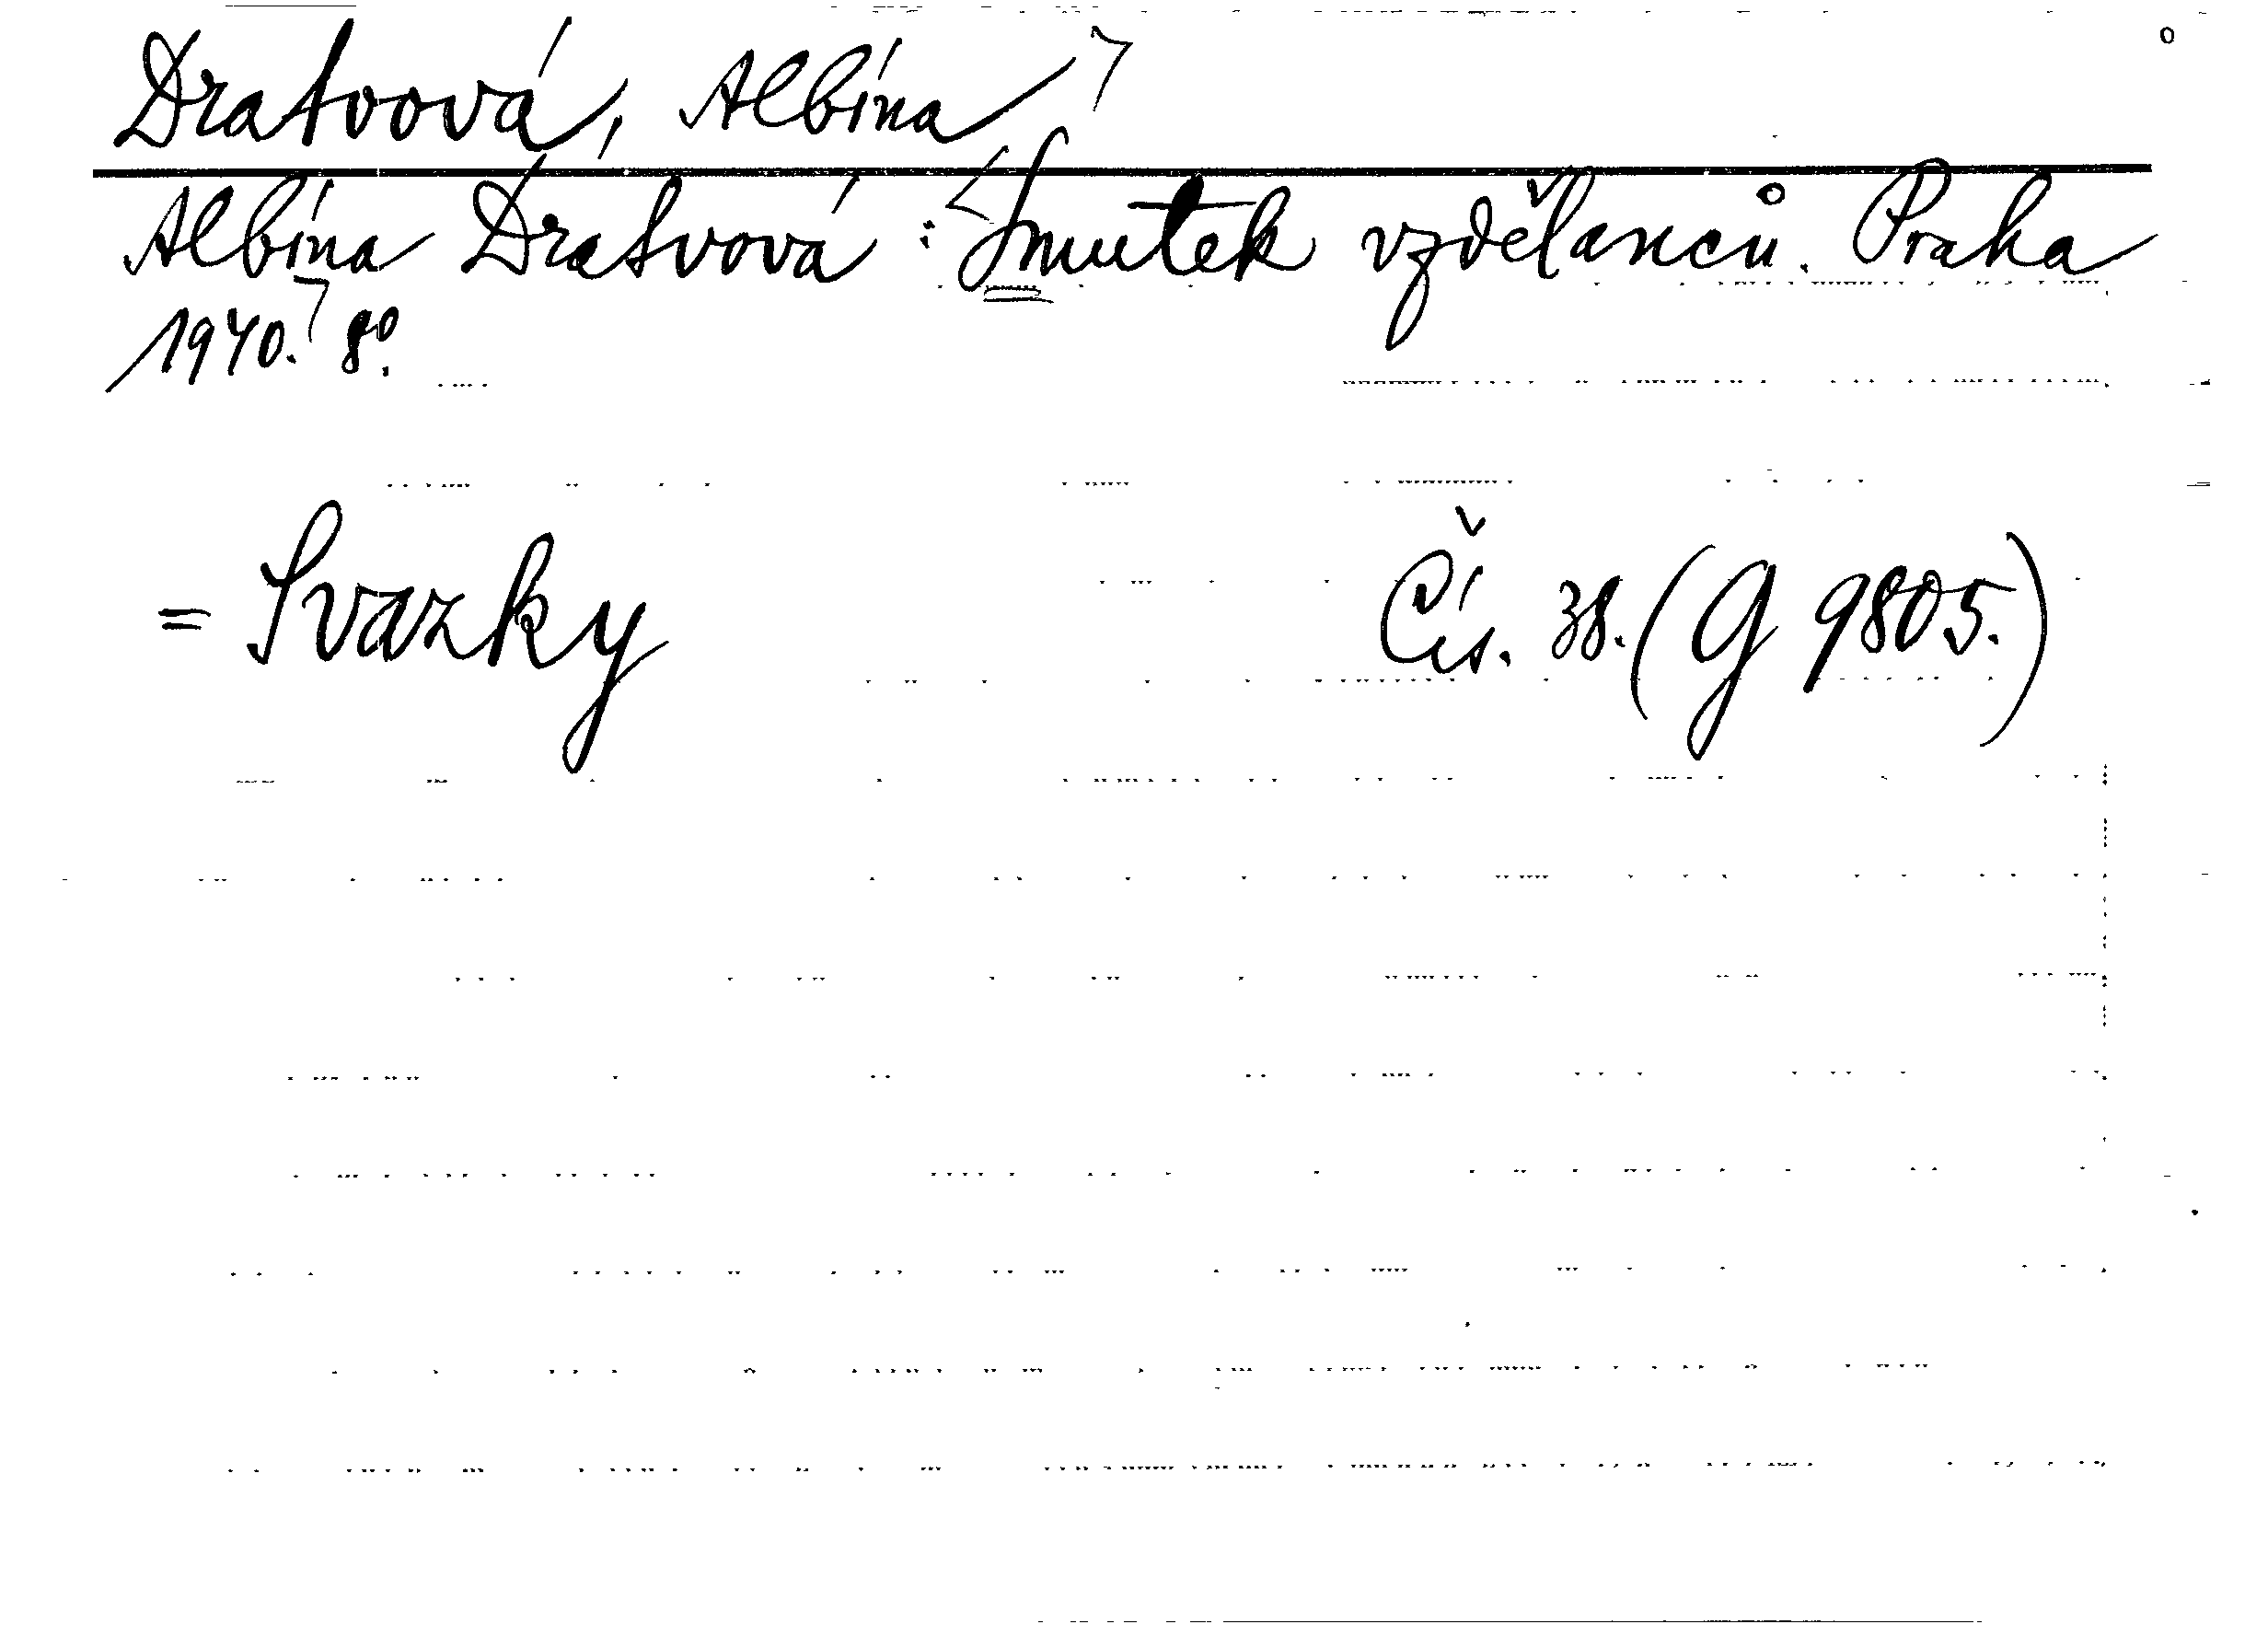 Dratvová, Albína
Albína Dratvová: Smutek vzdělanců. Praha
1940. 8º.
= Svazky Čís. 38. (G 9805.)